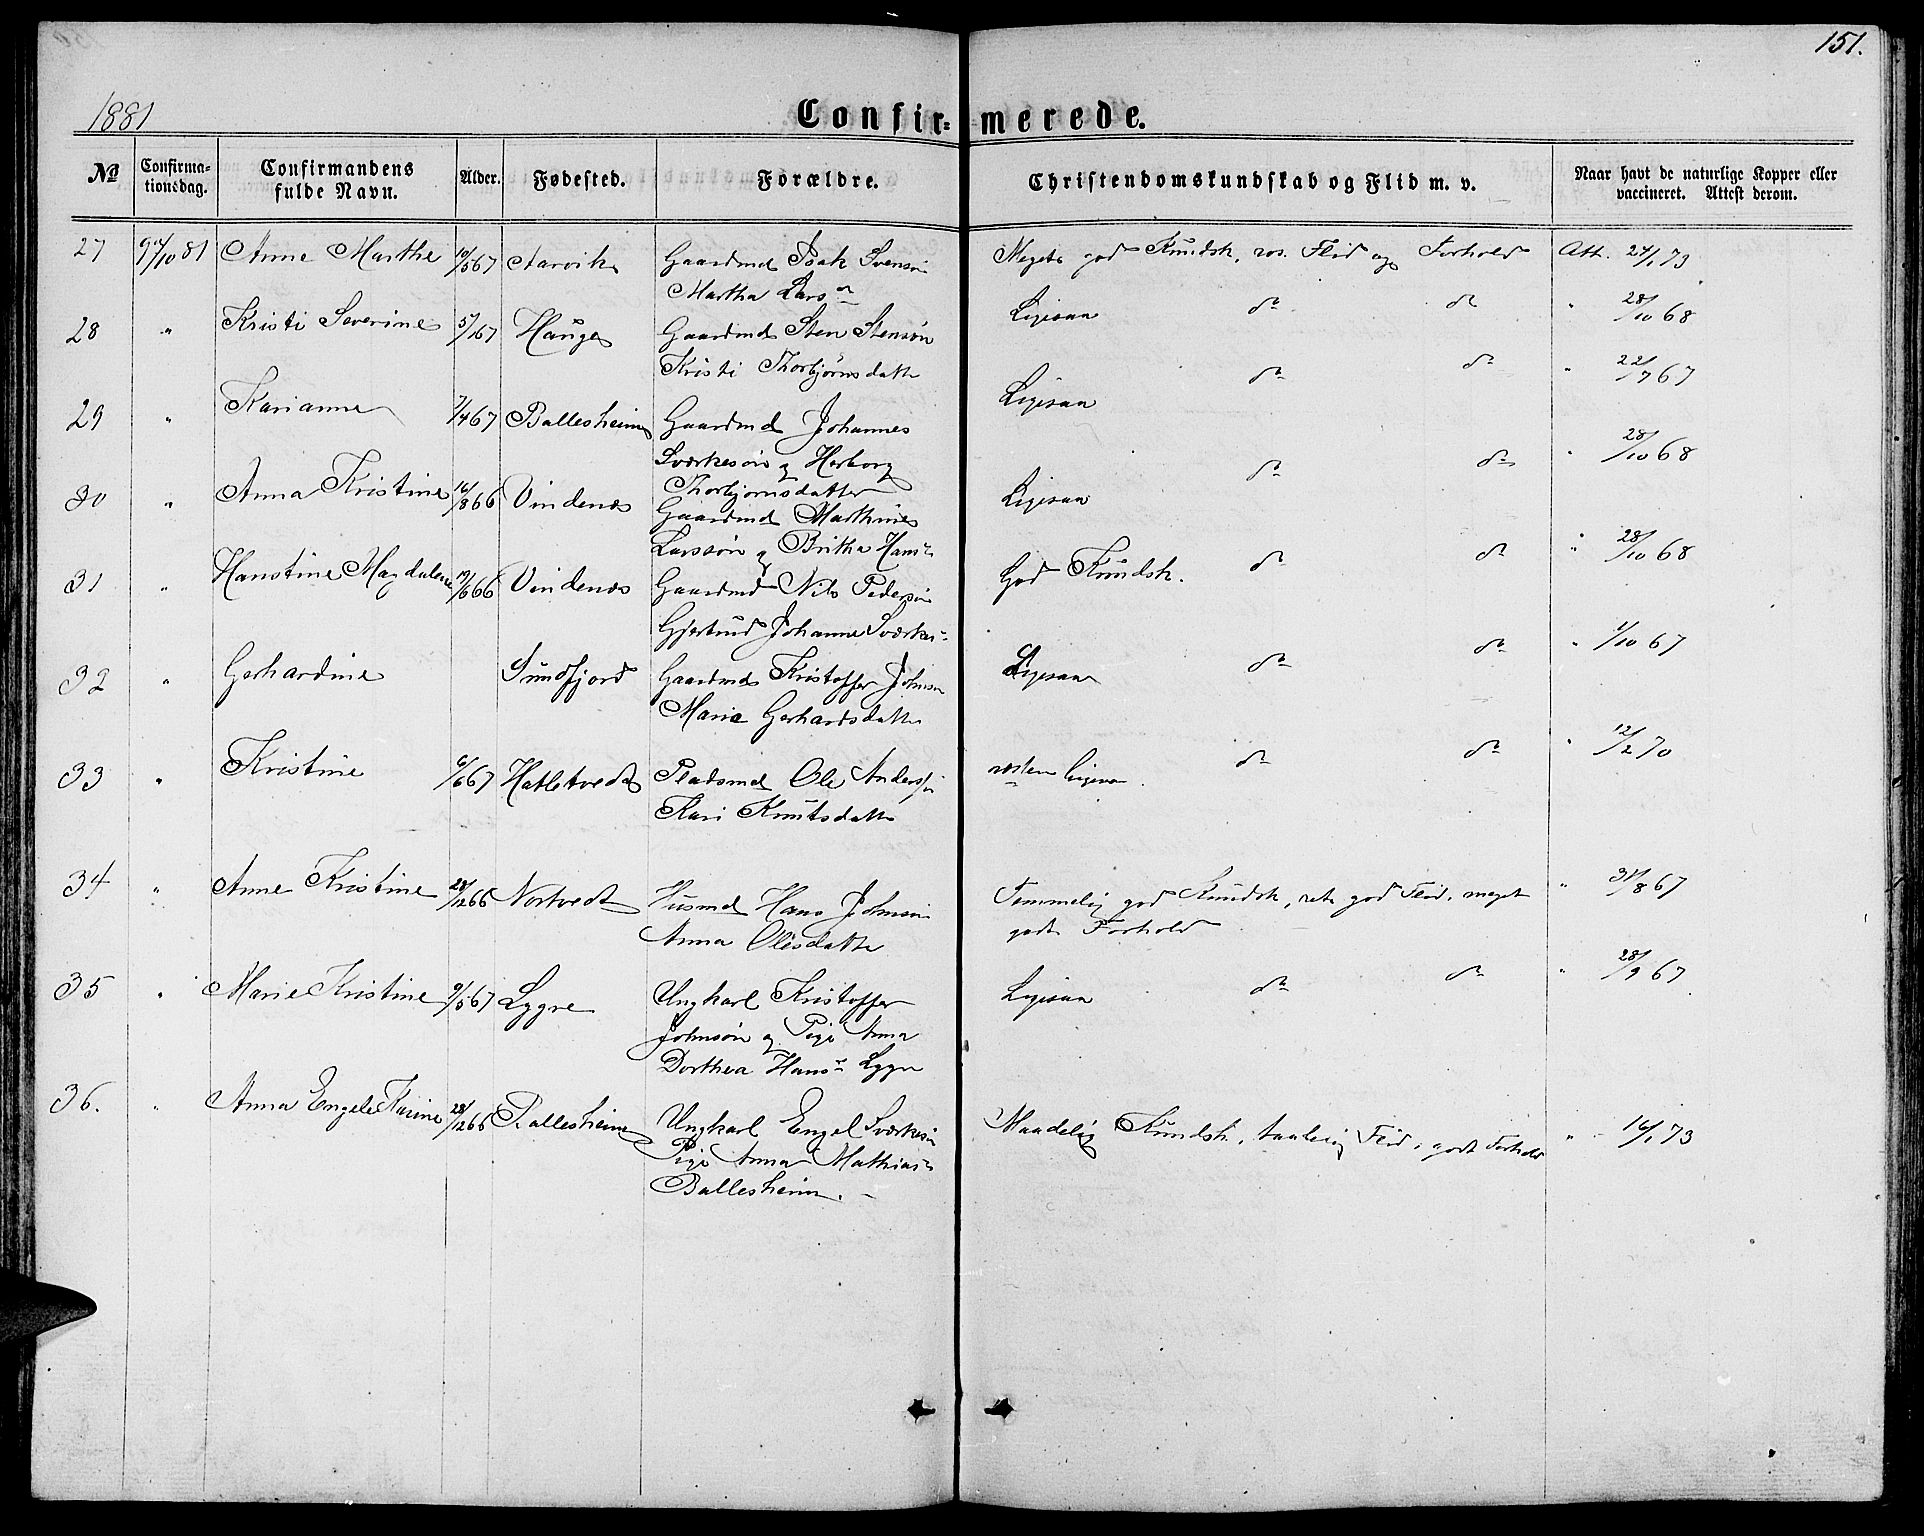 151.
1881
Confir= merede.
No Confirma- tionsdag. Confirmandens fulde Navn. Alder. Fødested. Forældre. Christendomskundskab og Flid m. v. Naar havt de naturlige Kopper eller vaccineret. Attest derom.
27 9/10 81 Anne Marthe 10/5 67 Aarvik Gaardmd Isak Svensøn Meget god Kundsk. ros. Flid og Forhold Att. 24/1 73
Martha Lars
28 " Kristi Severine 5/1 67 Hauge Gaardmd Sten Stensøn Ligesaa do do " 28/10 68
Kristi Thorbjørnsdatte
29 " Karianne 7/4 67 Ballesheim Gaardmd Johannes Ligesaa do do " 22/7 67
Sværkesøn og Herborg
Thorbjørnsdatter
30 " Anna Kristine 16/8 66 Vindenes Gaardmd Mathines Ligesaa do do " 28/10 68
Larssøn og Britha Hans
31 " Hanstine Magdalene 19/6 66 Vindenes Gaardmd Nils Pedersøn God Kundsk. do do " 28/10 68
Gjertrud Johanne Sværkes
32 " Gerhardine Sundfjord Gaardmd Kristoffer Johnsn Ligesaa do do " 1/10 67
Maria Gerhardsdatte
33 " Kristine 6/6 67 Hatletvedt Pladsmd Ole Anderss næsten Ligesaa do do " 12/2 70
Kari Knutsdatte
34 " Anne Kristine 28/12 66 Nortvedt Husmd Hans Johnsøn Temmelig god Kundsk, ret god Flid, meget " 31/8 67
Anna Olesdatte godt Forhold
35 " Marie Kristine 9/5 67 Lygre Ungkarl Kristoffer Ligesaa do do " 28/9 67
Johnsøn og Pige Anna
Dorthea Hans Lygre
36. " Anna Engele Karine 28/12 66 Ballesheim Ungkarl Engel Sværkesøn Maadelig Kundsk, taalelig Flid, godt Forhold " 16/1 73
Pige Anna Mathias
Ballesheim.